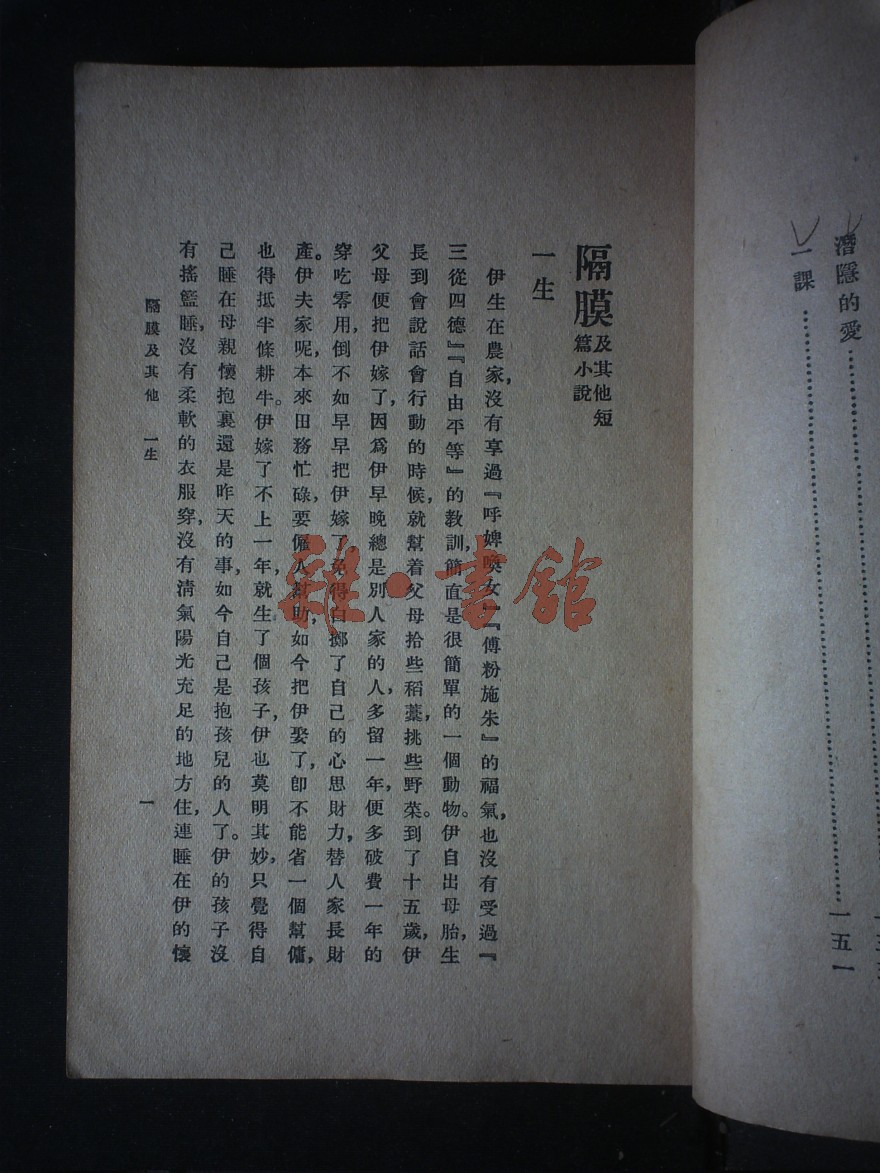 潛隱的愛……………………………………
一課……………………………………一五一
隔膜及其他短篇小說
一生
伊生在農家，沒有享過『呼婢喚女』『傅粉施朱』的福氣，也沒有受過『
三從四德』『自由平等』的教訓，簡直是很簡單的一個動物。伊自出母胎，生
長到會說話會行動的時候，就幫着父母拾些稻藁，挑些野菜。到了十五歲，伊
父母便把伊嫁了，因爲伊早晚總是別人家的人，多留一年，便多破費一年的
穿吃零用，倒不如早早把伊嫁了，免得白擲了自己的心思財力，替人家長財
產。伊夫家呢，本來田務忙碌，要僱人幫助，如今把伊娶了，卽不能省一個幫傭，
也得抵半條耕牛。伊嫁了不上一年，就生了個孩子，伊也莫明其妙，只覺得自
己睡在母親懷抱裏還是昨天的事，如今自己是抱孩兒的人了。伊的孩子沒
有搖籃睡，沒有柔軟的衣服穿，沒有淸氣陽光充足的地方住，連睡在伊的懷
隔膜及其他 一生
一
雜·書館